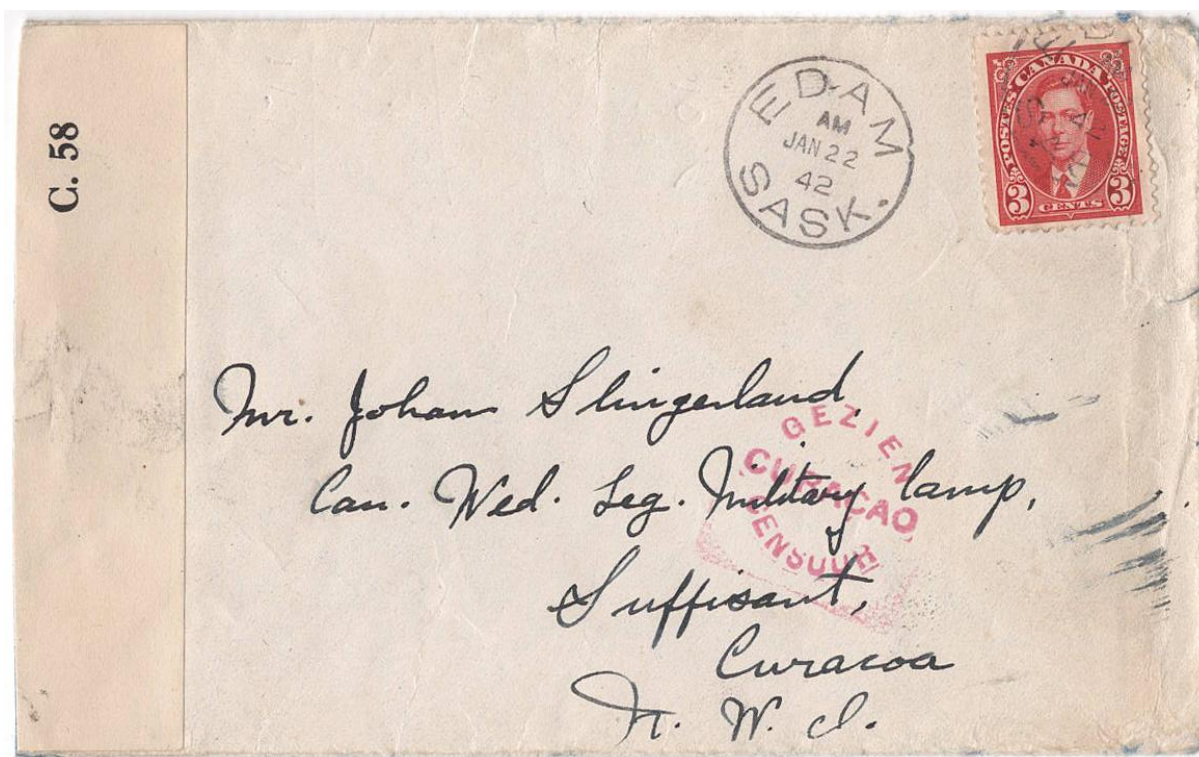 C. 58
EDAM
AM
JAN 22
42
SASK.
POSTES CANADA POSTAGE
3 CENTS 3
Mr. Johan Slingerland.
Can. Ned. Leg. Military Camp,
Suffisant,
Curacoa
N. W. I.
GEZIEN
CURACAO
CENSUUR